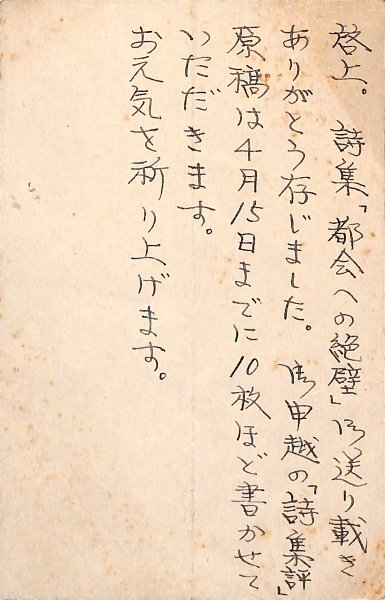 啓上。 詩集「都会への絶壁」御送り載き
ありがとう存じました。 御申越の「詩集評」
原稿は4月15日までに10枚ほど書かせて
いただきます。
お元気を祈り上げます。